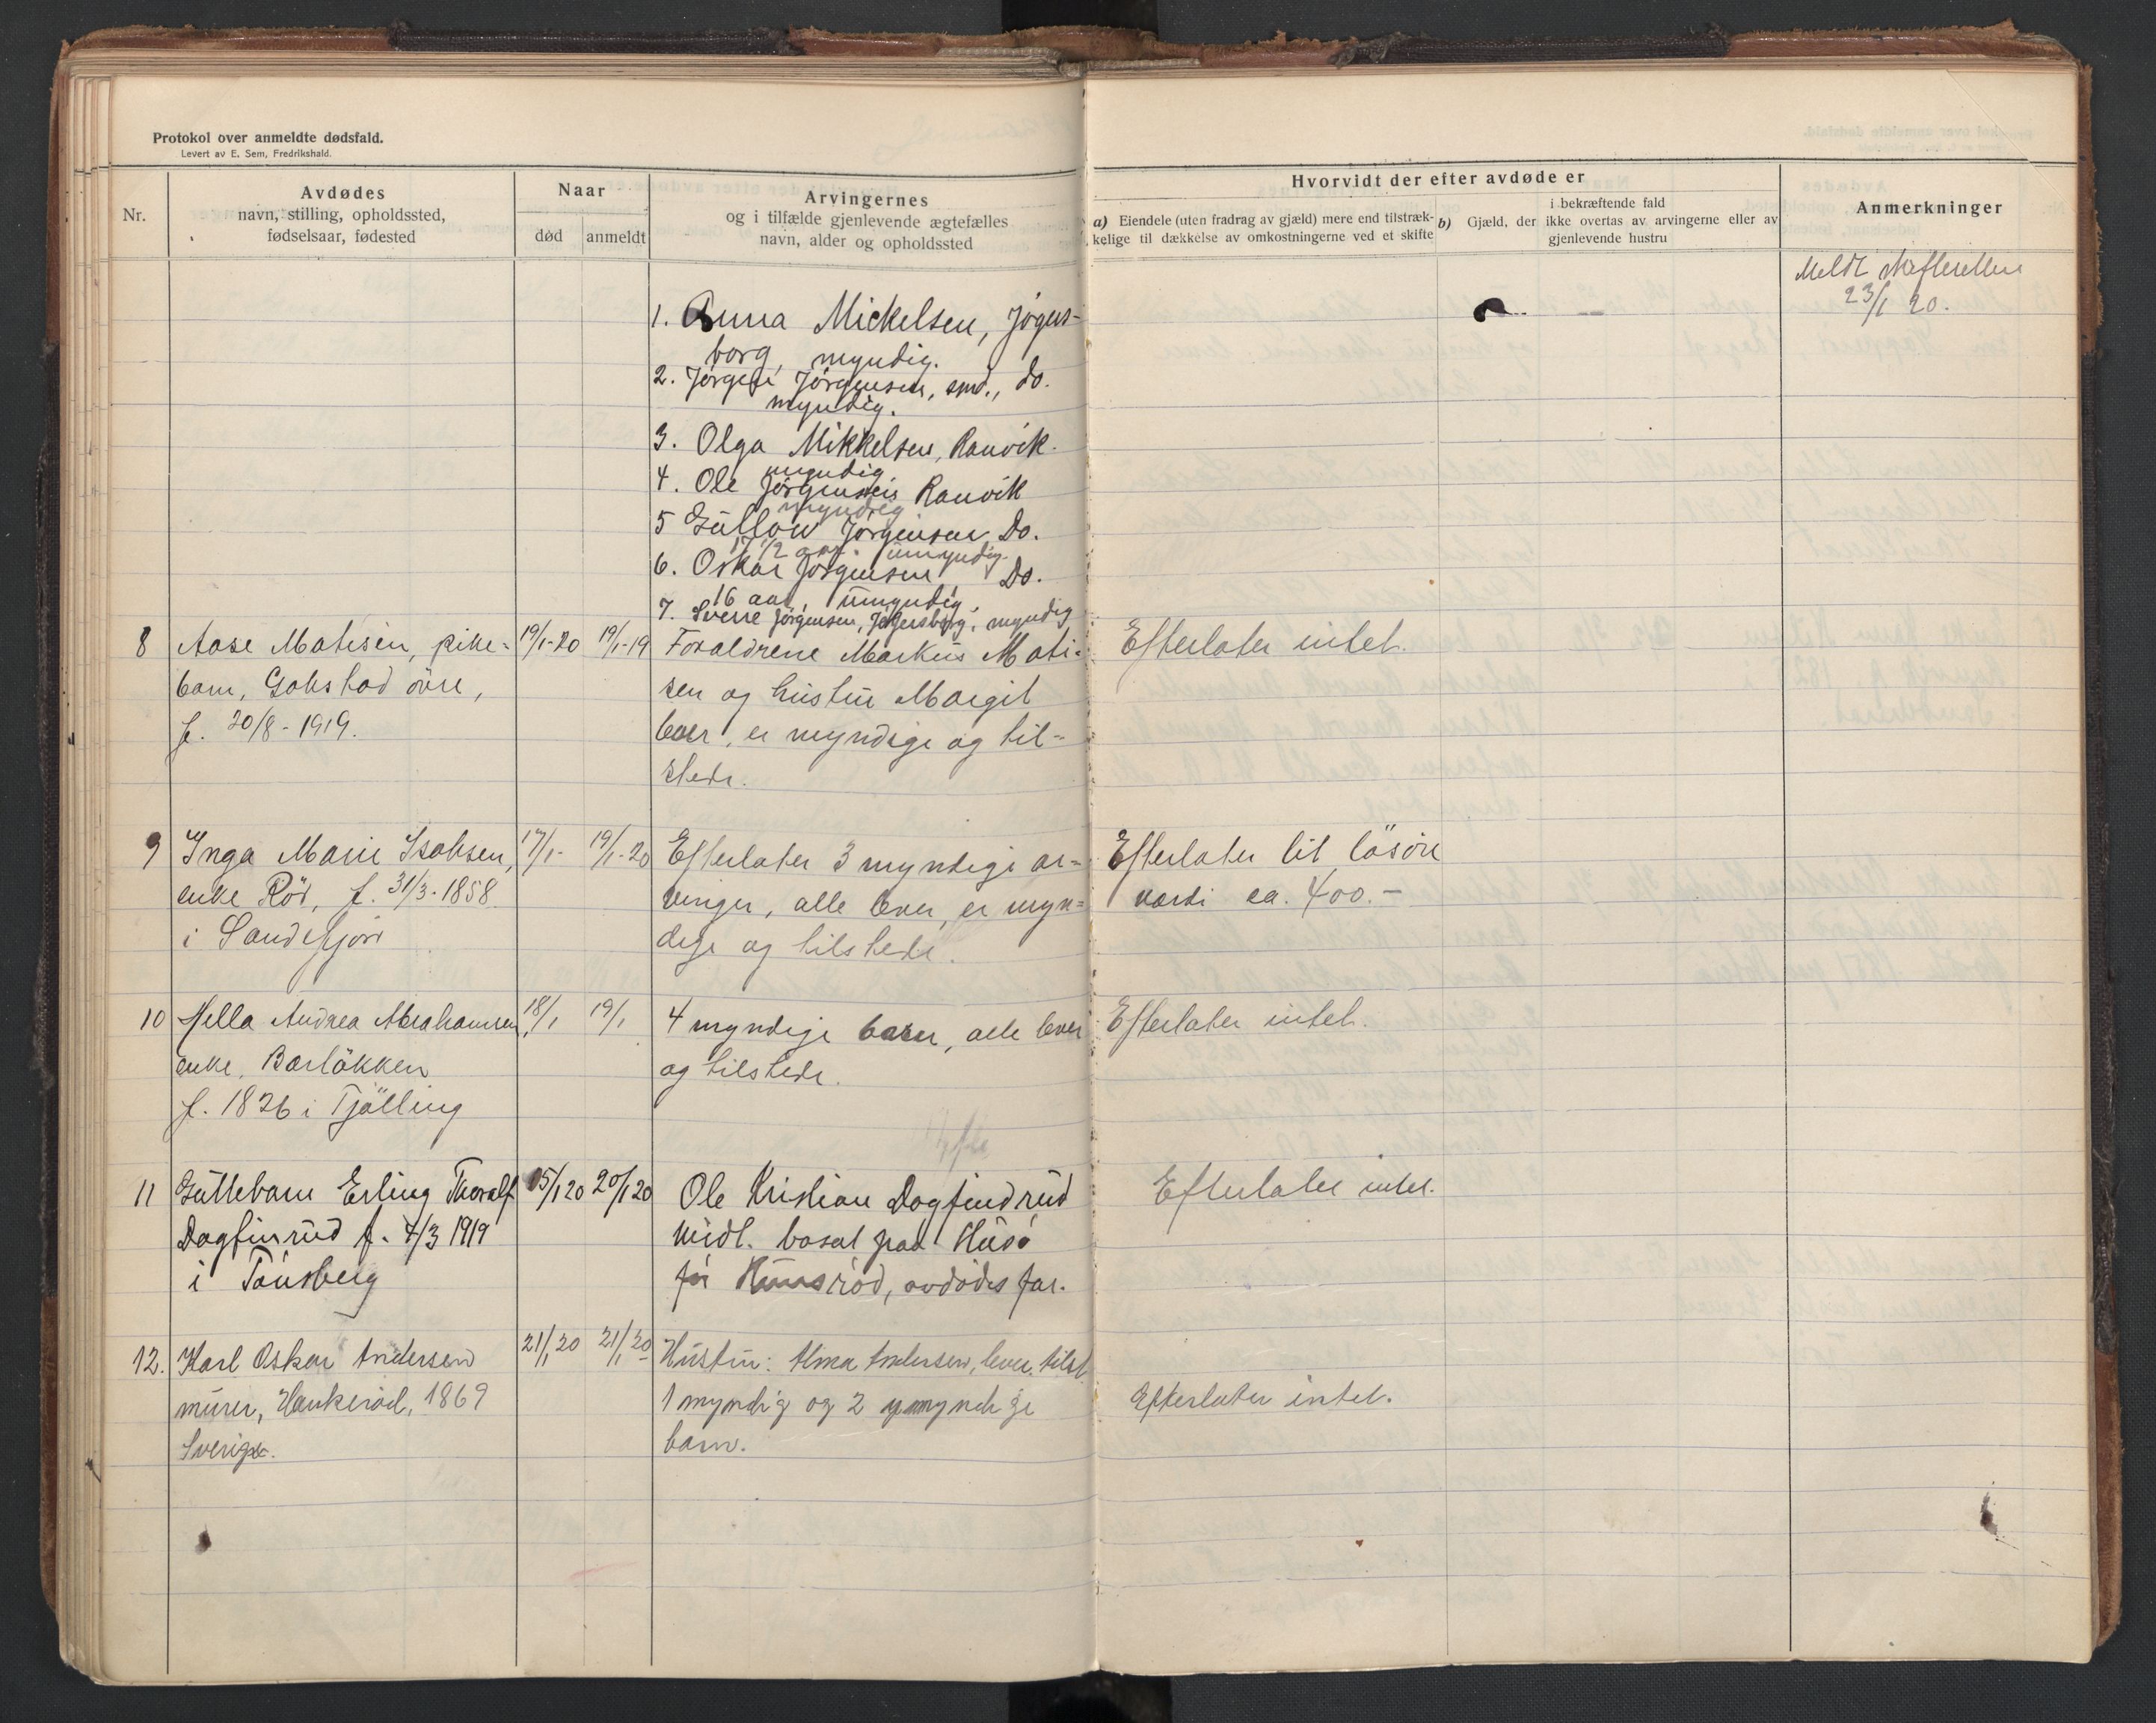 Protokol over anmeldte dødsfald.
Levert av E. Sem, Fredrikshald.
Nr.
Avdødes
navn, stilling, opholdssted,
fødselsaar, fødested
Naar
død
anmeldt
Arvingernes
og i tilfælde gjenlevende ægtefælles
navn, alder og opholdssted
Hvorvidt der efter avdøde er
a) Eiendele (uten fradrag av gjæld) mere end tilstræk-
kelige til dækkelse av omkostningerne ved et skifte
b) Gjæld, der
i bekræftende fald
ikke overtas av arvingerne eller av
gjenlevende hustru
Anmerkninger
1. Anna Mickelsen, Jøgers-
borg, myndig.
2. Jørgen Jørgensen, smd., do.
myndig.
3. Olga Mikkelsen, Ranvik.
myndig
4. Ole Jørgensen Ranvik
myndig
5 Gullow Jørgensen Do.
17 1/2 aar. umyndig.
6. Oskar Jørgensen Do.
16 aar, umyndig,
7. Sverre Jørgensen, Jøgersborg, myndig
Meldt skifteretten
23/1 20.
8 Aase Matisen, pike-
barn, Gokstad øvre,
f. 20/8-1919.
19/1-20 19/1-19
Foraldrene Markus Mati-
sen og hustru Margit
lever, er myndige og til-
stede.
Efterlater intet.
9 Inga Marie Isaksen,
enke Röd, f. 31/3-1858
i Sandefjord
17/1- 19/1-20
Efterlater 3 myndige ar-
vinger, alle lever, er myn-
dige og tilstede.
Efterlater lit lösöre
værdi ca. 400.-
10 Hella Andrea Abrahamsen,
enke, Barløkken
f. 1826 i Tjölling
18/1 19/1
4 myndige barn, alle lever
og tilstede.
Efterlater intet.
11 Guttebarn Erling Thoralf
Dagfinrud f. 4/3 1919
i Tønsberg
15/1 20 20/1 20
Ole Kristian Dagfindrud
midl. bosat paa Husø
før Haasrød, avdødes far.
Efterlater intet.
12. Karl Oskar Andersen
murer, Haukerød, 1869
Sverige.
21/1 20 21/1 20
Hustru: Alma Andersen, lever, tilst.
1 myndig og 2 umyndige
barn.
Efterlater intet.